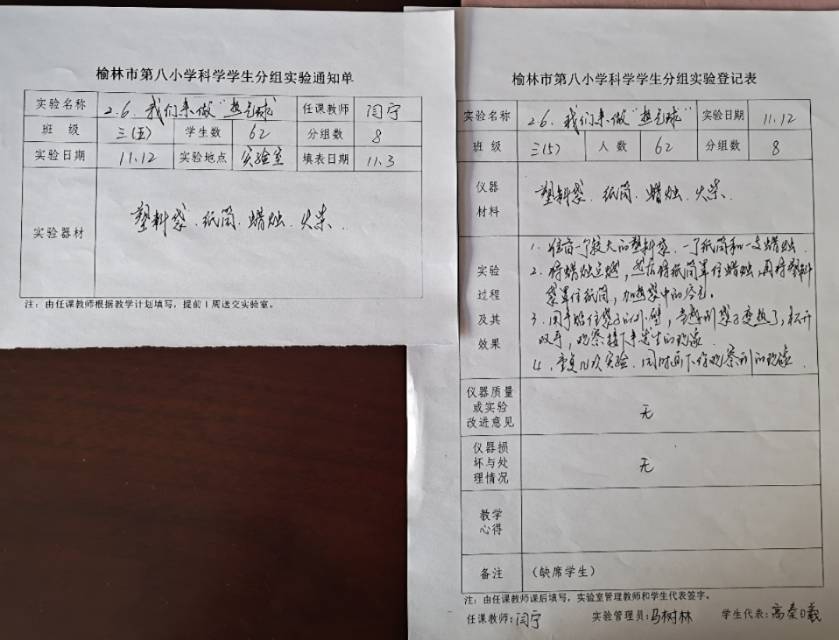 榆林市第八小学科学学生分组实验通知单
实验名称 2.6.我们来做"热气球" 任课教师 闫宁
班 级 三(五) 学生数 62 分组数 8
实验日期 11.12 实验地点 实验室 填表日期 11.3
实验器材 塑料袋.纸筒.蜡烛.火柴.
注：由任课教师根据教学计划填写，提前1周送交实验室。
榆林市第八小学科学学生分组实验登记表
实验名称 2.6.我们来做"热气球" 实验日期 11.12
班 级 三(5) 人 数 62 分组数 8
仪器材料 塑料袋.纸筒.蜡烛.火柴.
实验过程及其效果
1.准备一个较大的塑料袋.一个纸筒和一支蜡烛.
2.将蜡烛点燃,然后将纸筒罩住蜡烛,再将塑料
袋罩住纸筒,加热袋中的空气.
3.用手贴住袋子的外壁,当感到袋子变热了,松开
双手,观察接下来发生的现象
4.重复几次实验.同时画下你观察到的现象.
仪器质量或实验改进意见 无
仪器损坏与处理情况 无
教学心得
备注 （缺席学生）
注：由任课教师课后填写，实验室管理教师和学生代表签字。
任课教师:闫宁 实验管理员:马树林 学生代表:高 曦